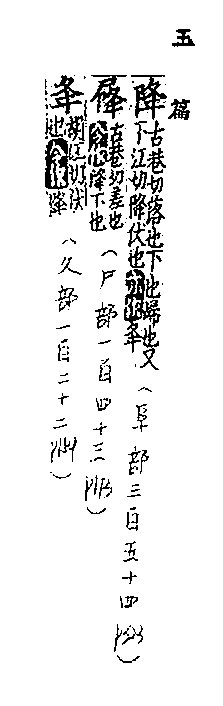 玉篇
降
古巷切落也下也歸也又
下江切降伏也今作夅
(阜部三百五十四
古巷切差也
今作降下也
(尸部一百四十三
夅
胡江切伏
也今作降
(夂部一百二十二